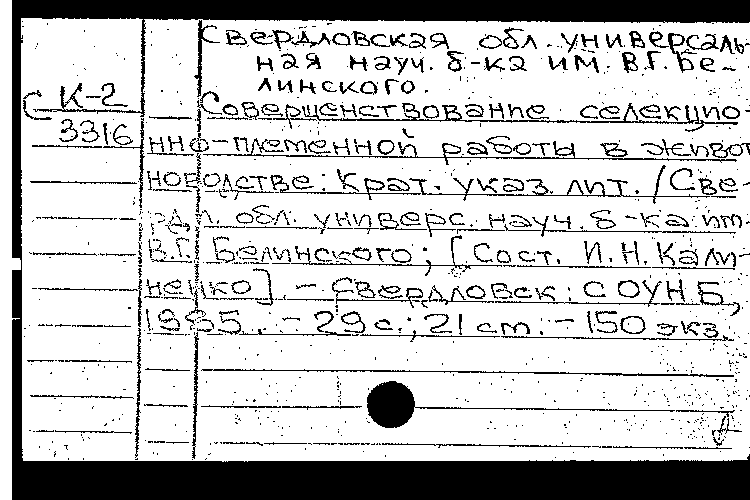 Свердловская обл. универсаль-
ная науч. б-ка им. В.Г. Бе-
линского.
С К-2
3316
Совершенствование селекцио-
нно-племенной работы в живот
новодстве: Крат. указ. лит. / Све-
рдл. обл. универс. науч. б-ка им.
В.Г. Белинского; [Сост. И.Н. Кали-
ненко]. - Свердловск: СОУНБ,
1985. - 29 с.; 21 см. - 150 экз.